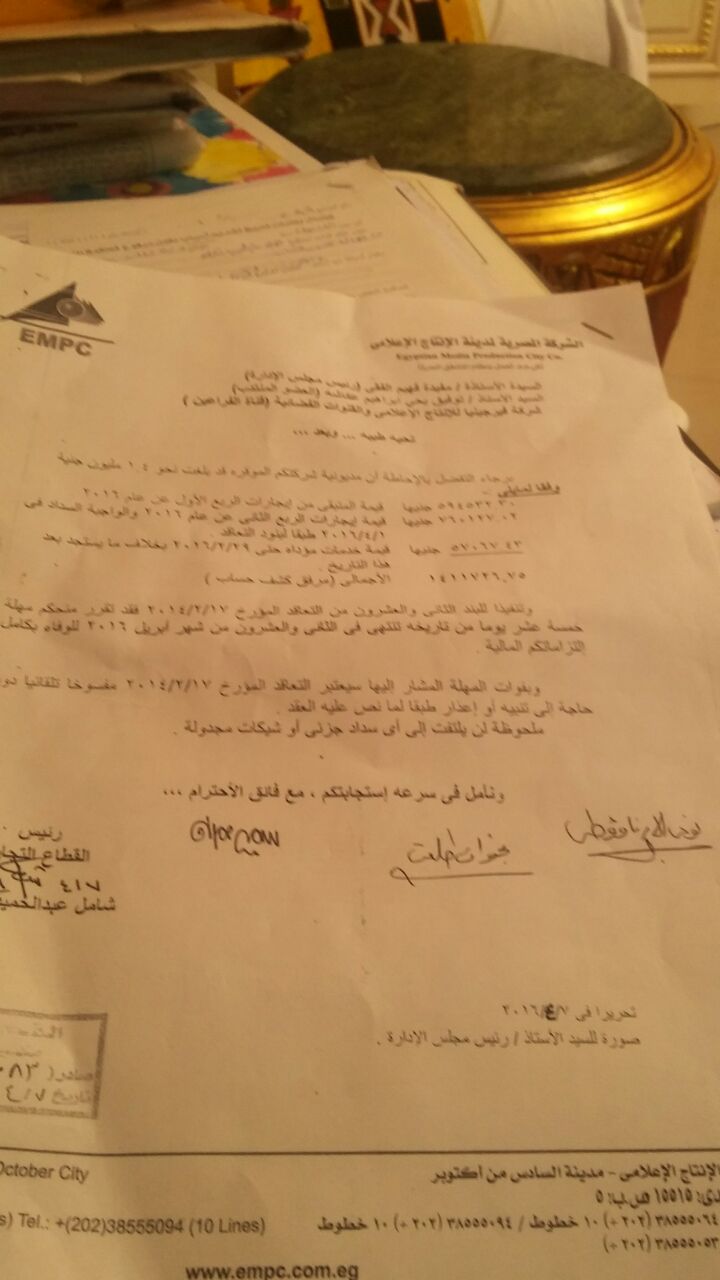 EMPC
الشركة المصرية لمدينة الإنتاج الإعلامى
Egyptian Media Production City Co.
السيدة الأستاذة / مفيدة فهيم الفقى (رئيس مجلس الإدارة)
السيد الأستاذ / توفيق يحي ابراهيم عكاشه (العضو المنتدب)
شركة فيرجينيا للإنتاج الإعلامى والقنوات الفضائية (قناة الفراعين )
تحيه طيبه ... وبعد ...
برجاء التفضل بالإحاطة أن مديونية شركتكم الموقره قد بلغت نحو ١.٤ مليون جنية
وفقا لمايلى :-
٥٩٤٥٣٢.٣٠ جنيها قيمة المتبقى من إيجارات الربع الأول عن عام ٢٠١٦
٧٦٠١٢٧.٠٢ جنيها قيمة إيجارات الربع الثانى عن عام ٢٠١٦ والواجبة السداد فى
٢٠١٦/٤/١ طبقا لبنود التعاقد .
٥٧٠٦٧.٤٣ جنيها قيمة خدمات مؤداه حتى ٢٠١٦/٢/٢٩ بخلاف ما يستجد بعد
هذا التاريخ .
١٤١١٧٢٦.٧٥ الأجمالى (مرفق كشف حساب )
وتنفيذا للبند الثانى والعشرون من التعاقد المؤرخ ٢٠١٤/٢/١٧ فقد تقرر منحكم مهلة
خمسة عشر يوما من تاريخه تنتهى فى الثانى والعشرون من شهر أبريل ٢٠١٦ للوفاء بكامل
إلتزاماتكم المالية .
وبفوات المهلة المشار إليها سيعتبر التعاقد المؤرخ ٢٠١٤/٢/١٧ مفسوخا تلقائيا دو
حاجة إلى تنبيه أو إعذار طبقا لما نص عليه العقد .
ملحوظة لن يلتفت إلى أى سداد جزئى أو شيكات مجدولة .
ونأمل فى سرعه إستجابتكم ، مع فائق الأحترام ...
رئيس
القطاع التجا
٤/٧
شامل عبدالحميد
تحريرا فى ٢٠١٦/٤/٧
صورة للسيد الأستاذ / رئيس مجلس الإدارة .
صادر(
تاريخ ٤/٧
الإنتاج الإعلامى - مدينة السادس من أكتوبر
October City
١٥٥١٥ ص.ب: ٥
٣٨٥٥٥٠٦٤ (٢٠٢+) ١٠ خطوط / ٣٨٥٥٥٠٩٤ (٢٠٢+) ١٠ خطوط
s) Tel.: +(202)38555094 (10 Lines)
٣٨٥٥٥٠٥٣ (٢٠٢+)
www.empc.com.eg